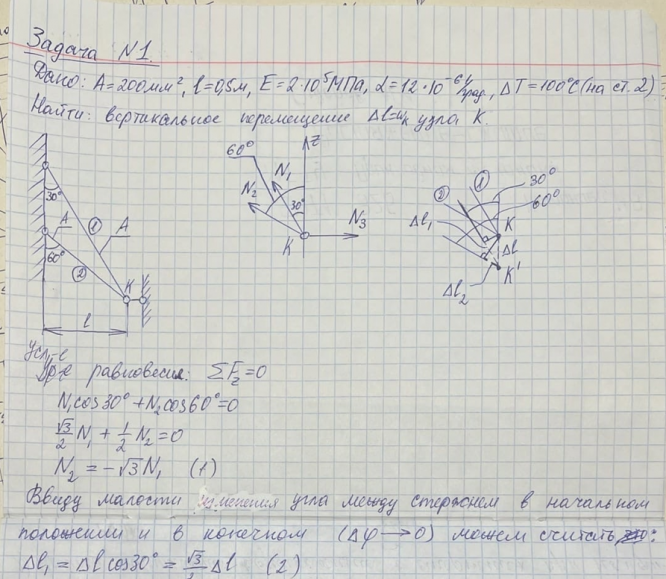 Задача N1.
Дано: A=200мм², l=0,5м, E=2·10⁵МПа, α=12·10⁻⁶ 1/град, ΔT=100°C (на ст. 2)
Найти: вертикальное перемещение Δl=u_K узла K.
60°
N₁
z
N₂
30°
K
N₃
30°
A
①
A
60°
②
K
l
②
①
30°
60°
Δl₁
K
Δl
K'
Δl₂
Усл-е
Ур-е равновесия: ΣF_z=0
N₁cos30°+N₂cos60°=0
√3/2 N₁ + 1/2 N₂ = 0
N₂ = -√3 N₁ (1)
Ввиду малости изменения угла между стержнем в начальном
положении и в конечном (Δφ→0) можем считать:
Δl₁ = Δl cos30° = √3/2 Δl (2)